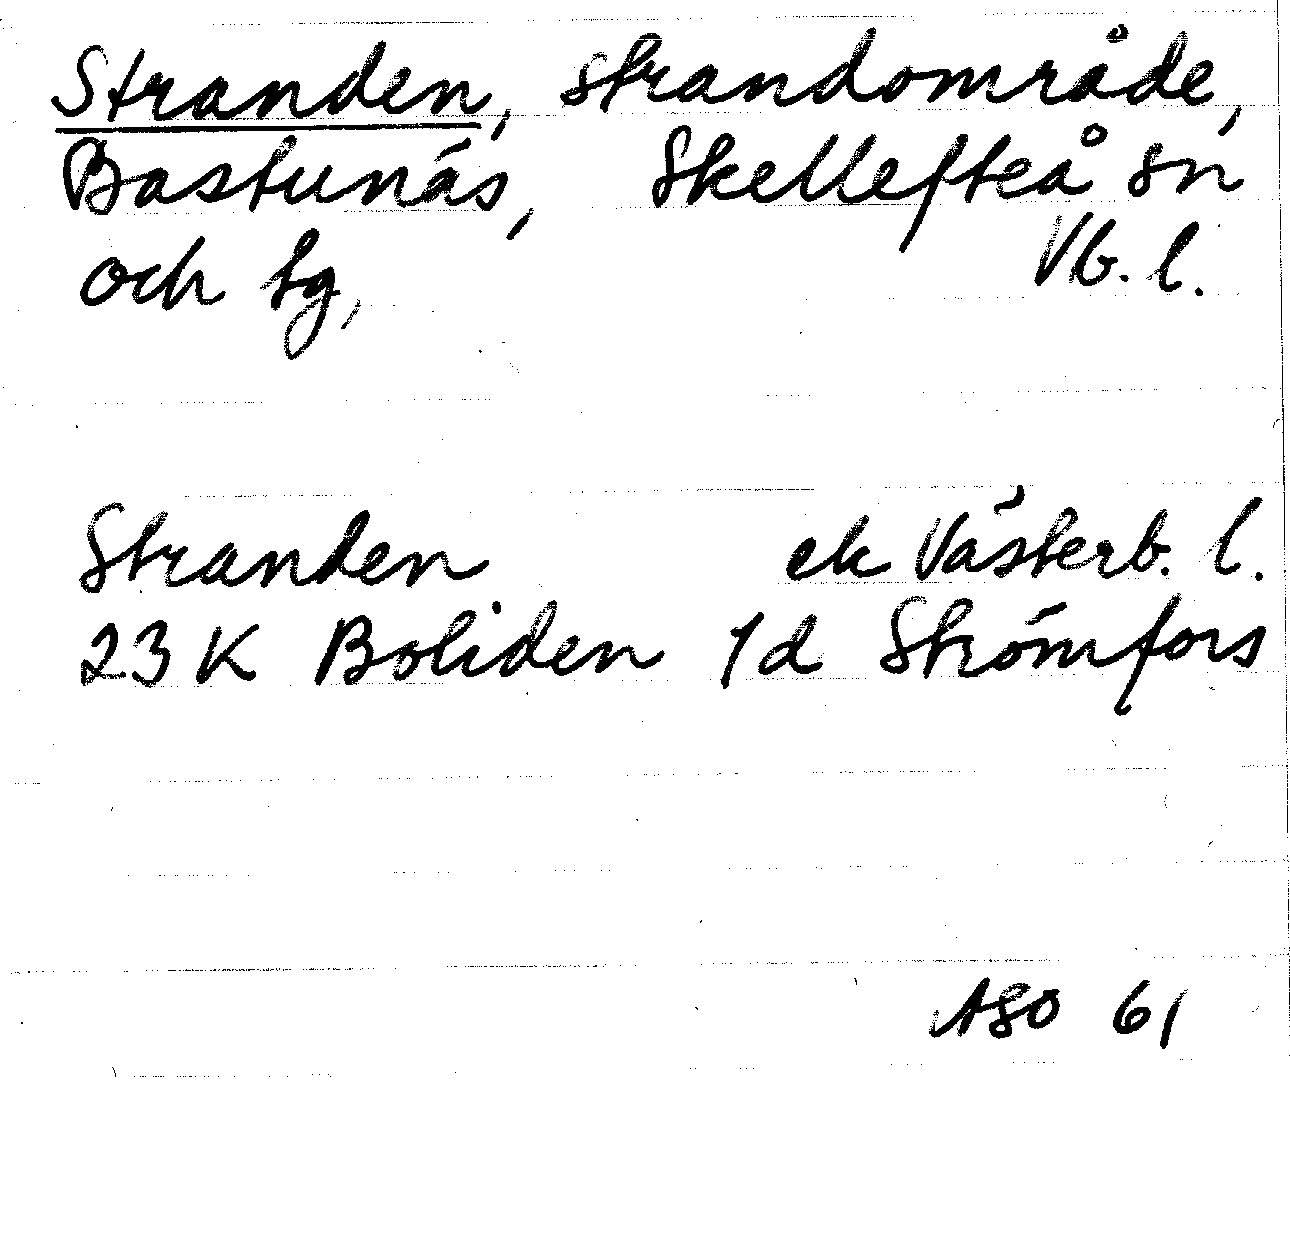 Stranden, strandområde,
Bastunäs, Skellefteå sn
och tg, Vb. l.
Stranden ek Västerb. l.
23 K Boliden 1d Strömfors
ASO 61